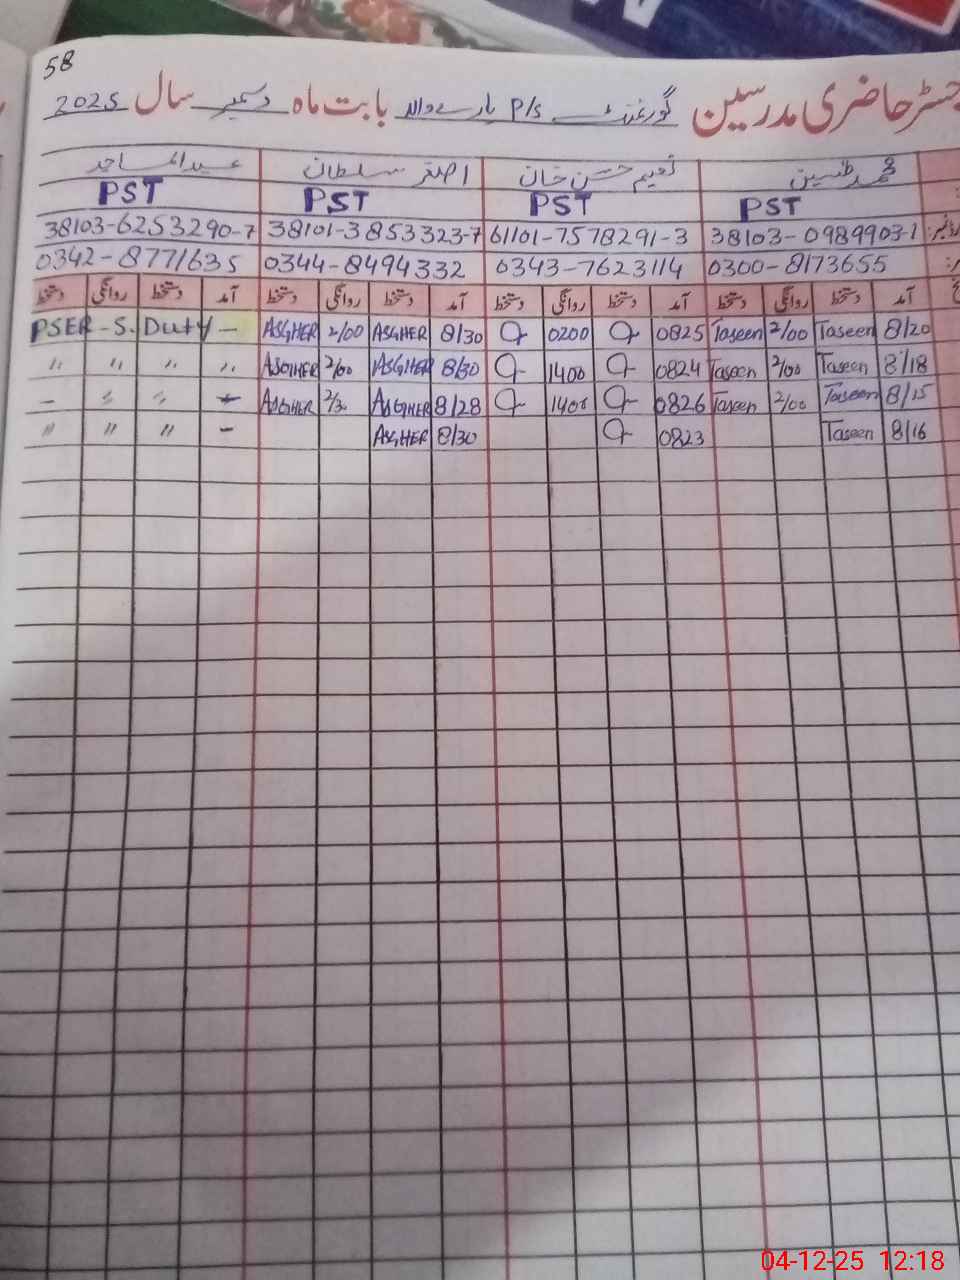 58
جسٹر حاضری مدرسین گورنمنٹ P/S بابت ماہ دسمبر سال 2025
محمد تحسین نعیم حسن خان اصغر سلطان عبدالماجد
PST PST PST PST
38103-6253290-7 38101-3853323-7 61101-7578291-3 38103-0989903-1
0342-8771635 0344-8494332 0343-7623114 0300-8173655
آمد دستخط روانگی دستخط آمد دستخط روانگی دستخط آمد دستخط روانگی دستخط آمد دستخط روانگی دستخط
PSER-S. Duty - ASGHER 2/00 ASGHER 8/30 0200 0825 Taseen 2/00 Taseen 8/20
" " " " ASGHER 2/00 ASGHER 8/30 1400 0824 Taseen 2/00 Taseen 8/18
ASGHER 2/30 ASGHER 8/28 1400 0826 Taseen 2/00 Taseen 8/15
" " " - ASGHER 8/30 0823 Taseen 8/16
04-12-25 12:18